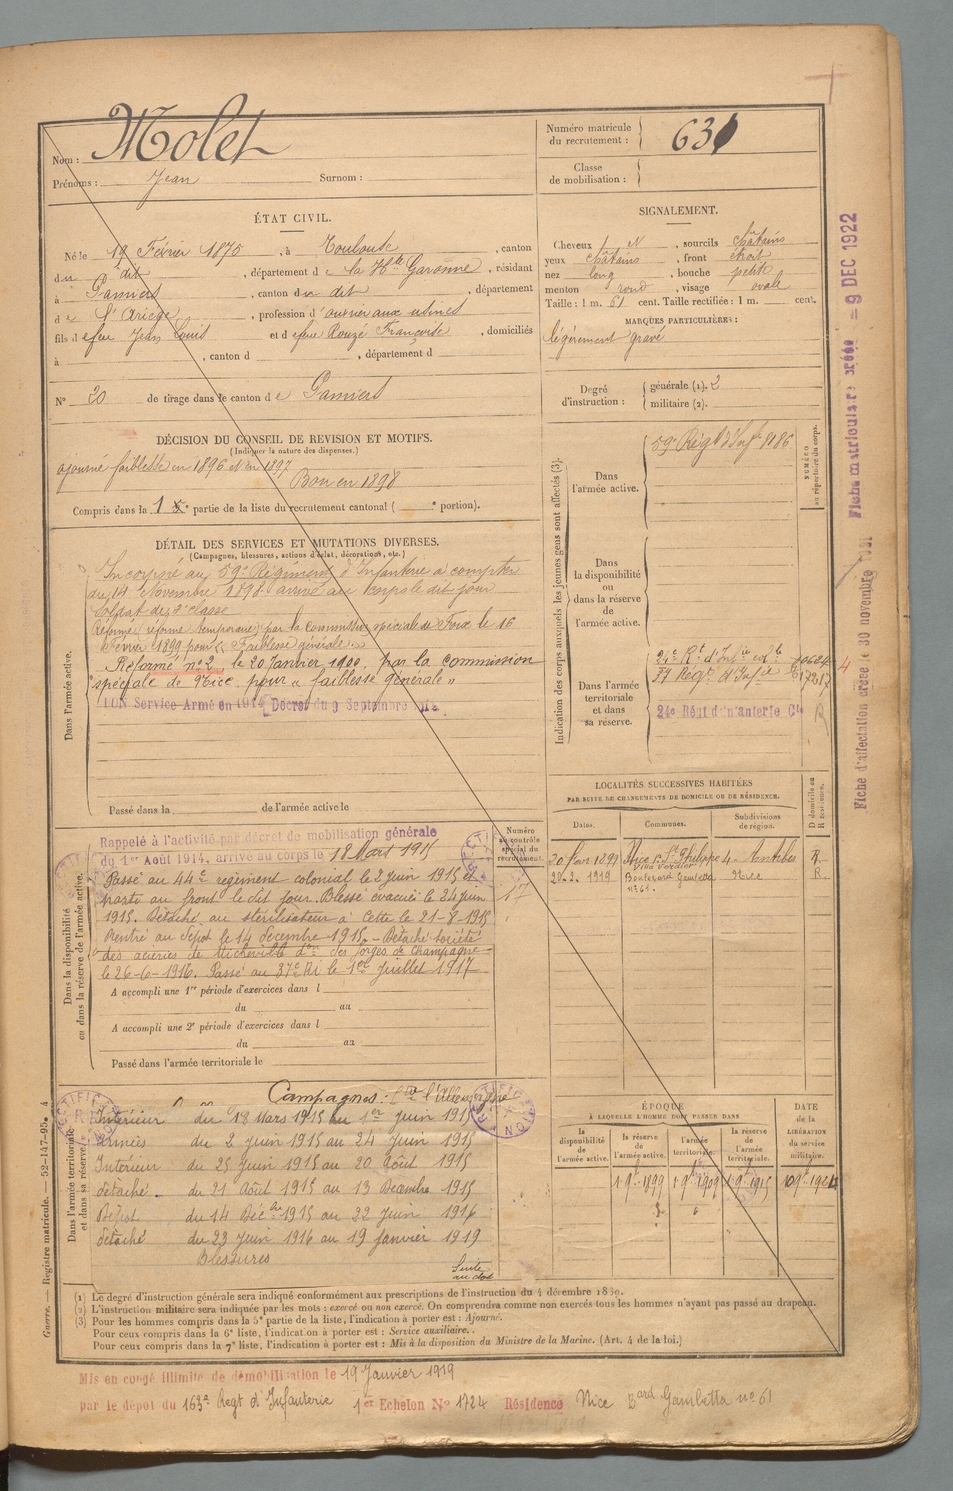 Nom : Molet
Prénoms : Jean Surnom :
Numéro matricule du recrutement : 631
Classe de mobilisation :
ÉTAT CIVIL.
Né le 19 Février 1875, à Toulouse, canton
du dit, département de la Hte Garonne, résidant
à Pamiers, canton du dit, département
de l'Ariège, profession d'ouvrier aux usines
fils de feu Jean Louis et de feu Rouzé Françoise, domiciliés
à , canton d , département d
N° 20 de tirage dans le canton de Pamiers
SIGNALEMENT.
Cheveux , sourcils châtains
yeux châtains, front étroit
nez long, bouche petite
menton rond, visage ovale
Taille : 1 m. 61 cent. Taille rectifiée : 1 m. cent.
MARQUES PARTICULIÈRES :
légèrement gravé
Degré d'instruction : générale (1). 2
militaire (2).
DÉCISION DU CONSEIL DE REVISION ET MOTIFS.
(Indiquer la nature des dispenses.)
ajourné faiblesse en 1896 et en 1897
Bon en 1898
Compris dans la 1 e partie de la liste du recrutement cantonal ( e portion).
DÉTAIL DES SERVICES ET MUTATIONS DIVERSES.
(Campagnes, blessures, actions d'éclat, décorations, etc.)
Dans l'armée active.
Incorporé au 59e Régiment d'Infanterie à compter
du 14 Novembre 1898 arrivé au corps le dit jour
Soldat de 2e classe
Réformé (réforme temporaire) par la commission spéciale de Foix le 16
Février 1899 pour « Faiblesse générale »
Réformé n° 2 le 20 Janvier 1900 par la commission
spéciale de Nice pour « faiblesse générale »
BON Service Armé en 1914 Décret du 9 Septembre 1914
Passé dans la de l'armée active le
Indication des corps auxquels les jeunes gens sont affectés (3).
NUMÉRO au répertoire du corps.
Dans l'armée active.
59e Régt d'Infie 8186
Dans la disponibilité ou dans la réserve de l'armée active.
Dans l'armée territoriale et dans sa réserve.
24e Rt d'Infie colle
37 Régt d'Infie 17217
24e Régt d'Infanterie Cle
LOCALITÉS SUCCESSIVES HABITÉES
PAR SUITE DE CHANGEMENTS DE DOMICILE OU DE RÉSIDENCE.
Dates. Communes. Subdivisions de région. D domicile ou R résidence.
20 Febr 1899 Nice r. St Philippe 4 Antibes R
20.2.1919 Boulevard Gambetta n° 61 Nice R.
Dans la disponibilité ou dans la réserve de l'armée active.
Numéro au contrôle spécial du recrutement.
Rappelé à l'activité par décret de mobilisation générale
du 1er Août 1914, arrivé au corps le 18 Mart 1915
Passé au 44e régiment colonial le 2 juin 1915 et
parti au front le dit jour. Blessé évacué le 24 juin
1915. Détaché au stérilisateur à Cette le 21-8-1915
Rentré au dépôt le 14 décembre 1915. - Détaché Société
des aciéries de Micheville des forges de Champagne
le 26-6-1916. Passé au 37e RI le 1er Juillet 1917
17
A accompli une 1re période d'exercices dans l
du au
A accompli une 2e période d'exercices dans l
du au
Passé dans l'armée territoriale le
Dans l'armée territoriale et dans sa réserve.
Campagnes : Ctre l'Allemagne
Intérieur du 18 Mars 1915 au 1er juin 1915
Armées du 2 juin 1915 au 24 juin 1915
Intérieur du 25 juin 1915 au 20 août 1915
détaché du 21 août 1915 au 13 décembre 1915
Dépôt du 14 Décbre 1915 au 22 juin 1916
détaché du 23 juin 1916 au 19 janvier 1919
Blessures
Suite au dos
RECTIFICATION
ÉPOQUE
À LAQUELLE L'HOMME DOIT PASSER DANS
la disponibilité de l'armée active. la réserve de l'armée active. l'armée territoriale. la réserve de l'armée territoriale.
DATE de la LIBÉRATION du service militaire.
(1) Le degré d'instruction générale sera indiqué conformément aux prescriptions de l'instruction du 4 décembre 1889.
(2) L'instruction militaire sera indiquée par les mots : exercé ou non exercé. On comprendra comme non exercés tous les hommes n'ayant pas passé au drapeau.
(3) Pour les hommes compris dans la 5e partie de la liste, l'indication à porter est : Ajourné.
Pour ceux compris dans la 6e liste, l'indication à porter est : Service auxiliaire.
Pour ceux compris dans la 7e liste, l'indication à porter est : Mis à la disposition du Ministre de la Marine. (Art. 4 de la loi.)
Mis en congé illimité de démobilisation le 19 Janvier 1919
par le dépôt du 163e Regt d'Infanterie 1er Echelon N° 1724 Résidence Nice Bard Gambetta no 61
Guerre. — Registre matricule. — 52-147-95. 4
Fiche matriculaire créée = 9 DEC 1922
Fiche d'affectation créée le 30 novembre